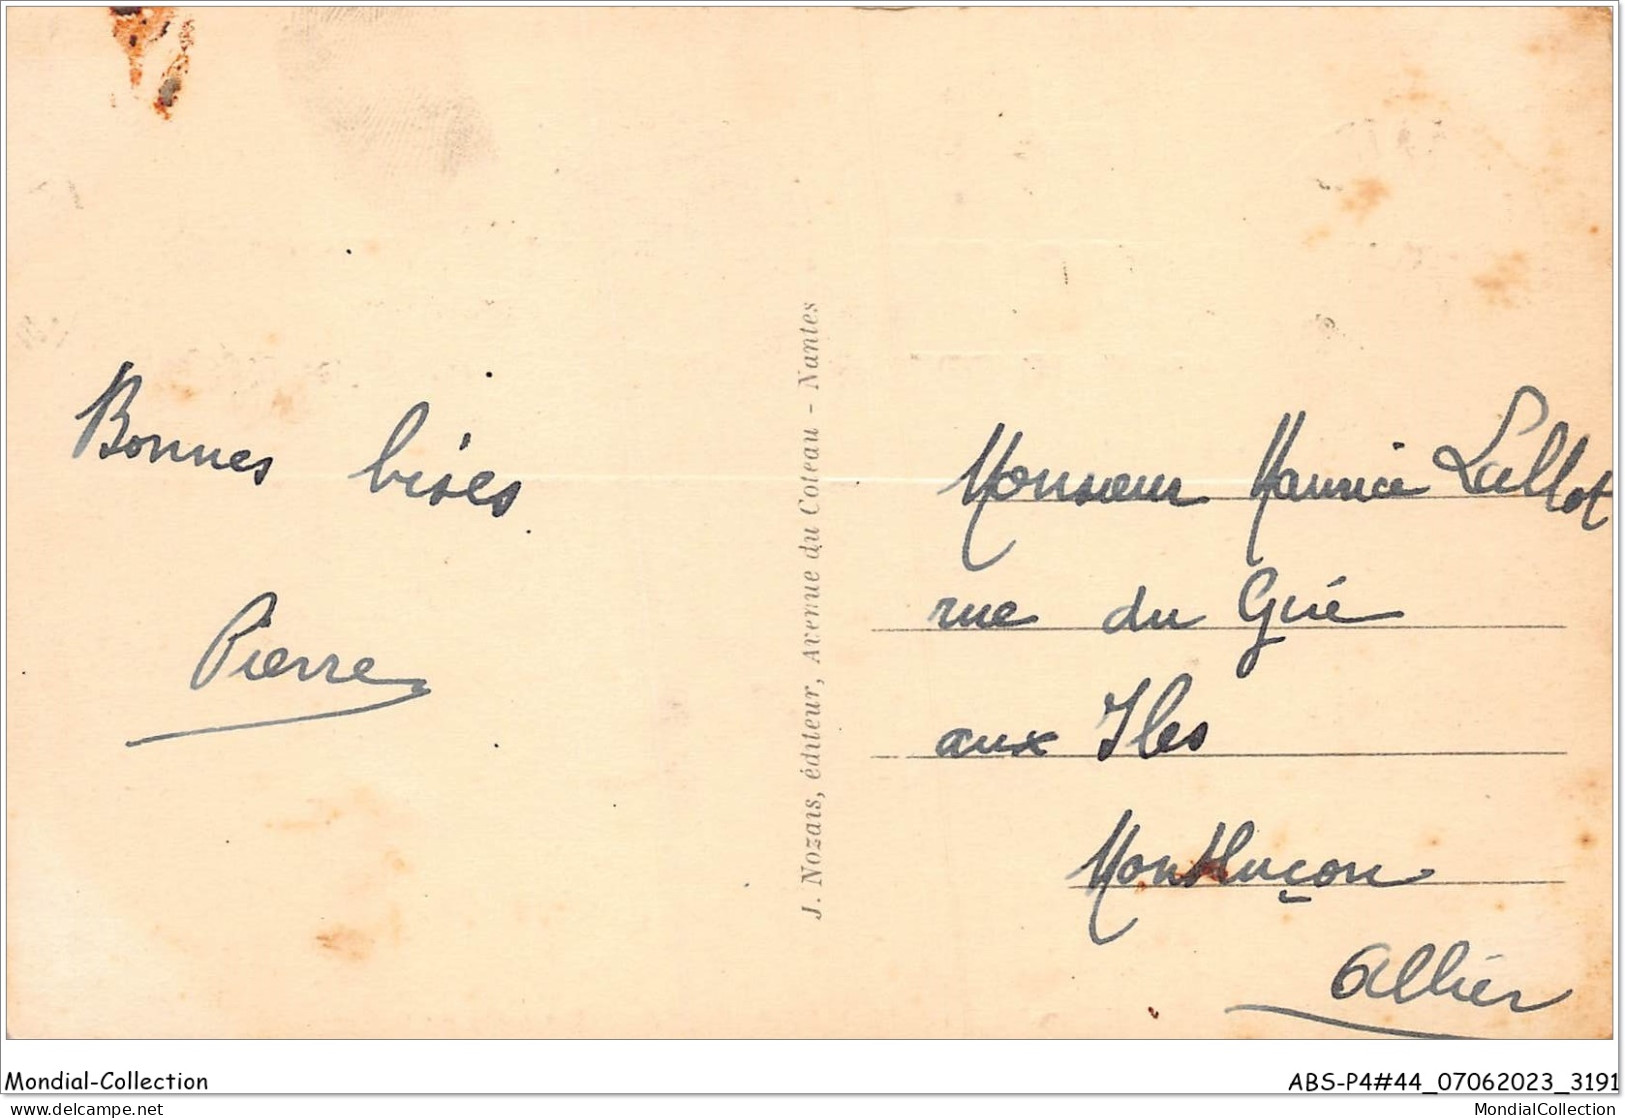 Bonnes bises
Pierre
J. Nozais, éditeur, Avenue du Coteau - Nantes
Monsieur Maurice Lallot
rue du Gué
aux Iles
Montluçon
Allier
Mondial-Collection
ABS-P4#44_07062023_3191
delcampe.net
MondialCollection